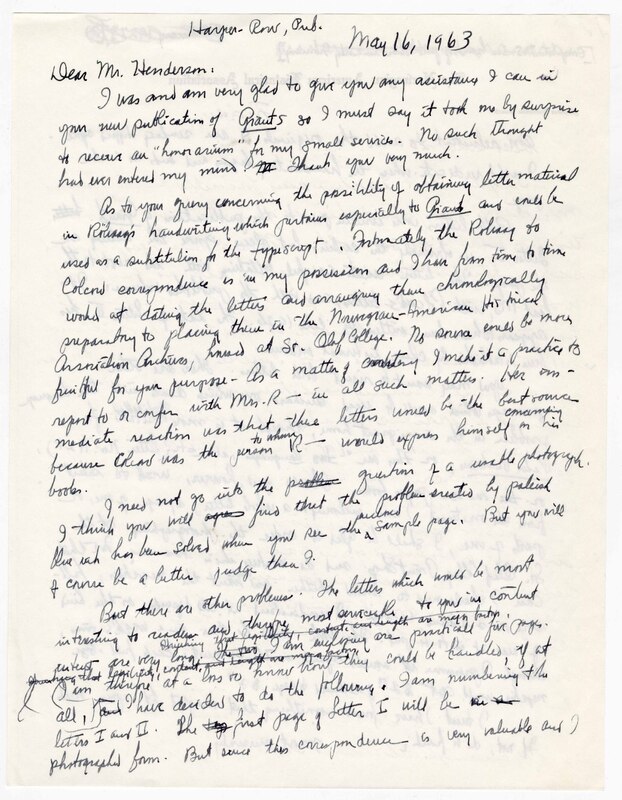 Harper-Row, Pub.
May 16, 1963
Dear Mr. Henderson:
I was and am very glad to give you any assistance I can in
your new publication of Giants so I must say it took me by surprise
to receive an "honorarium" for my small service. No such thought
had ever entered my mind. Thank you very much.
As to your query concerning the possibility of obtaining letter material
in Rölvaag's handwriting which pertains especially to Giants and could be
used as a substitution for the typescript. Fortunately the Rölvaag to
Colcord correspondence is in my possession and I have from time to time
worked at dating the letters and arranging them chronologically
preparatory to placing them in the Norwegian-American Historical
Association Archives, housed at St. Olaf College. No source could be more
fruitful for your purpose. As a matter of courtesy I make it a practice to
report to or confer with Mrs. R — in all such matters. Her im-
mediate reaction was that these letters would be the best source
because Colcord was the person to whom R — would express himself concerning his
books.
I need not go into the question of a usable photograph.
I think you will find that the problem created by faded
blue ink has been solved when you see the enclosed sample page. But you will
of course be a better judge than I.
But there are other problems. The letters which would be most
interesting to readers and therefore most serviceable to you in content
interest are very long. The two I am enclosing are practically five pages.
Granting that legibility, content, and length are major factors,
I am therefore at a loss to know how they could be handled if at
all, and I have decided to do the following. I am numbering the
letters I and II. The first page of Letter I will be in
photographed form. But since this correspondence is very valuable and I